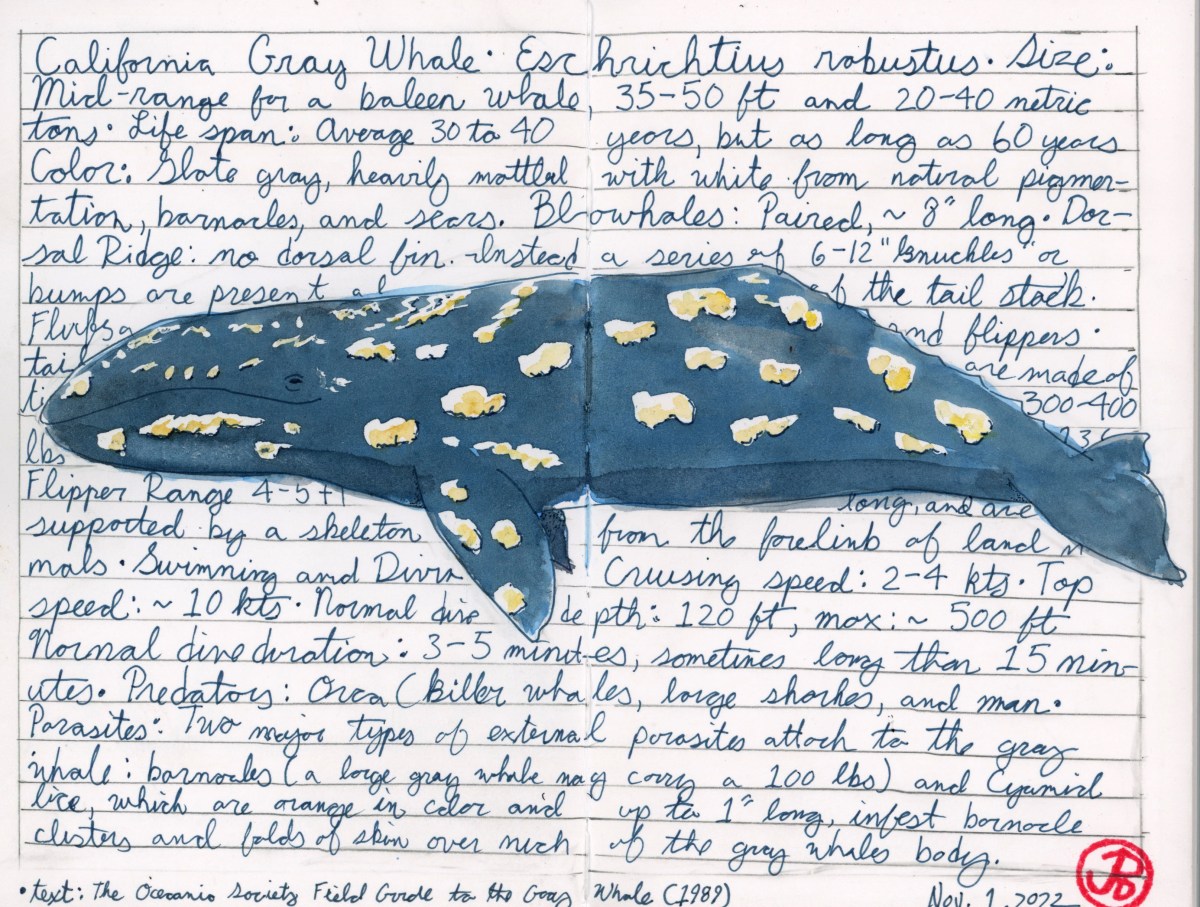 California Gray Whale · Eschrichtius robustus · Size:
Mid-range for a baleen whale, 35-50 ft and 20-40 metric
tons · Life span: Average 30 to 40 years, but as long as 60 years
Color: Slate gray, heavily mottled with white from natural pigmen-
tation, barnacles, and scars. Blowholes: Paired, ~ 8" long · Dor-
sal Ridge: no dorsal fin. Instead a series of 6-12 "knuckles" or
bumps are present al of the tail stock.
Flukes a and flippers.
tail are made of
ti 300-400
lbs
Flipper Range 4-5 ft long, and are
supported by a skeleton from the forelimb of land m
mals · Swimming and Divin Cruising speed: 2-4 kts · Top
speed: ~ 10 kts · Normal dive depth: 120 ft, max: ~ 500 ft
Normal dive duration: 3-5 minutes, sometimes long than 15 min-
utes. Predators: Orca (Killer whales, large sharks, and man.
Parasites: Two major types of external parasites attach to the gray
whale: barnacles (a large gray whale may carry a 100 lbs) and Cyamid
lice, which are orange in color and up to 1" long, infest barnacle
clusters and folds of skin over much of the gray whales body.
• text: The Oceanic Society Field Guide to the Gray Whale (1989)
Nov. 1, 2022
JPD